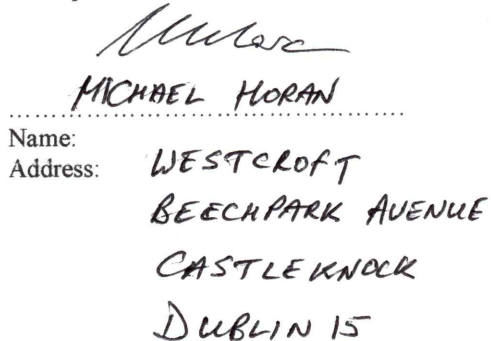 MICHAEL HORAN
........................................
Name:
Address: WESTCROFT
BEECHPARK AVENUE
CASTLEKNOCK
DUBLIN 15